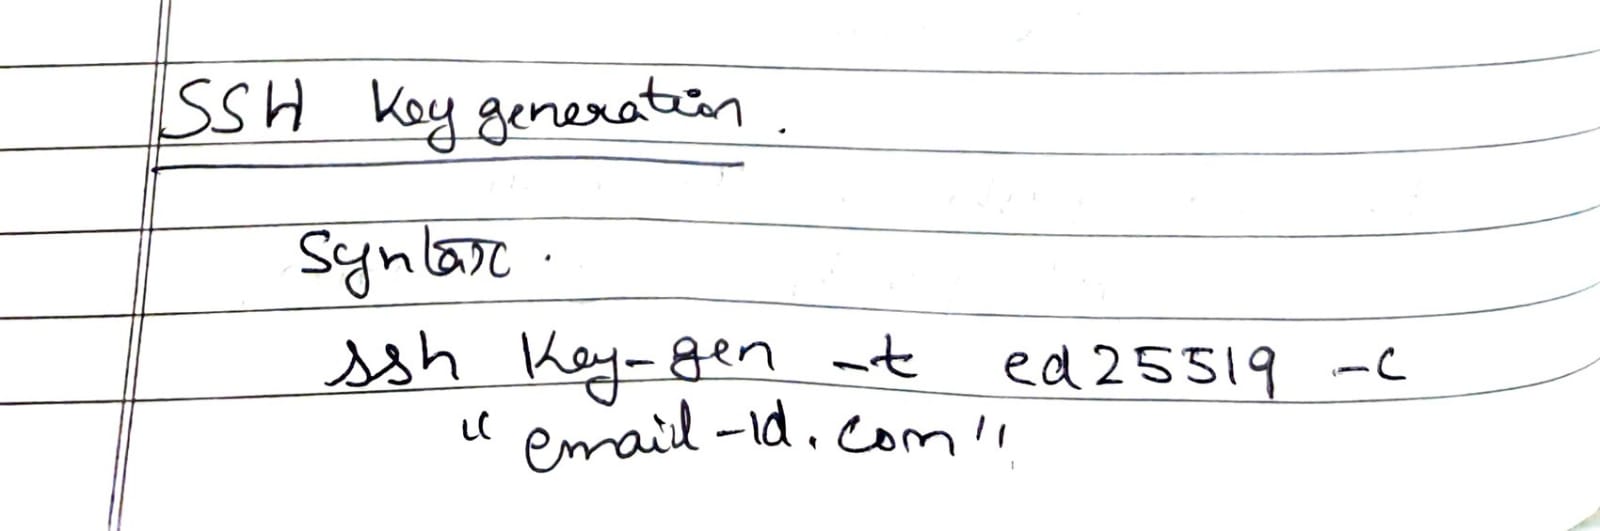 SSH Key generation.
Syntax.
ssh Key-gen -t ed25519 -c
"email-id.com"